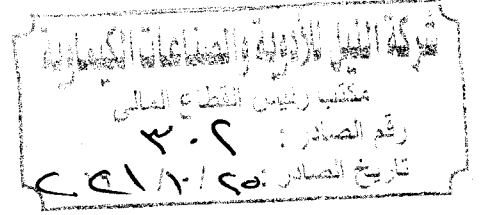 شركة النيل للأدوية والصناعات الكيماوية
مكتب رئيس القطاع المالى
رقم الصادر : ٣٠٢
تاريخ الصادر : ٢٥ / ١٠ /